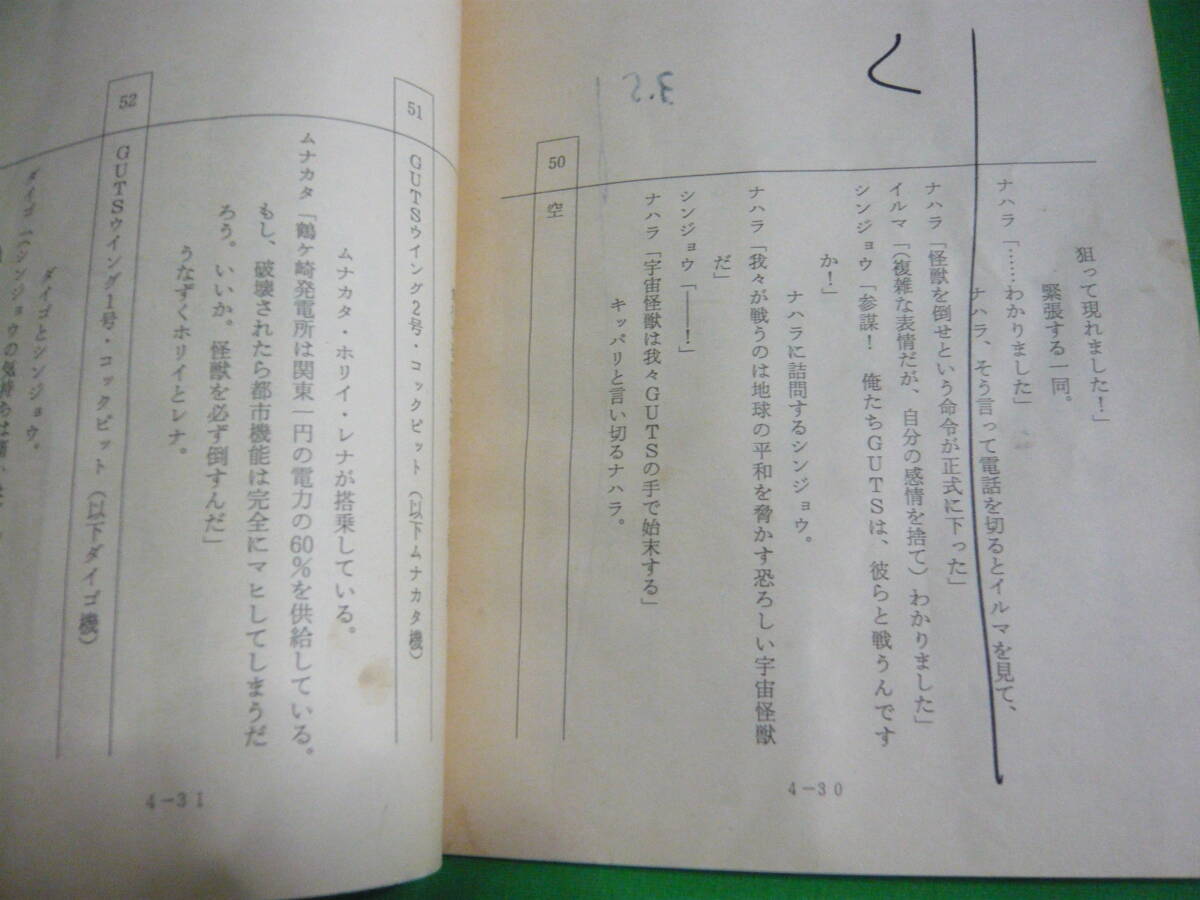 狙って現れました！」
緊張する一同。
ナハラ「……わかりました」
ナハラ、そう言って電話を切るとイルマを見て、
ナハラ「怪獣を倒せという命令が正式に下った」
イルマ「（複雑な表情だが、自分の感情を捨て）わかりました」
シンジョウ「参謀！　俺たちGUTSは、彼らと戦うんです
か！」
ナハラに詰問するシンジョウ。
ナハラ「我々が戦うのは地球の平和を脅かす恐ろしい宇宙怪獣
だ」
シンジョウ「――！」
ナハラ「宇宙怪獣は我々GUTSの手で始末する」
キッパリと言い切るナハラ。
50　空
4-30
51　GUTSウイング2号・コックピット（以下ムナカタ機）
ムナカタ・ホリイ・レナが搭乗している。
ムナカタ「鶴ヶ崎発電所は関東一円の電力の60％を供給している。
もし、破壊されたら都市機能は完全にマヒしてしまうだ
ろう。いいか。怪獣を必ず倒すんだ」
うなずくホリイとレナ。
52　GUTSウイング1号・コックピット（以下ダイゴ機）
ダイゴとシンジョウ。
ダイゴ「（シンジョウの気持ちは痛い
4-31